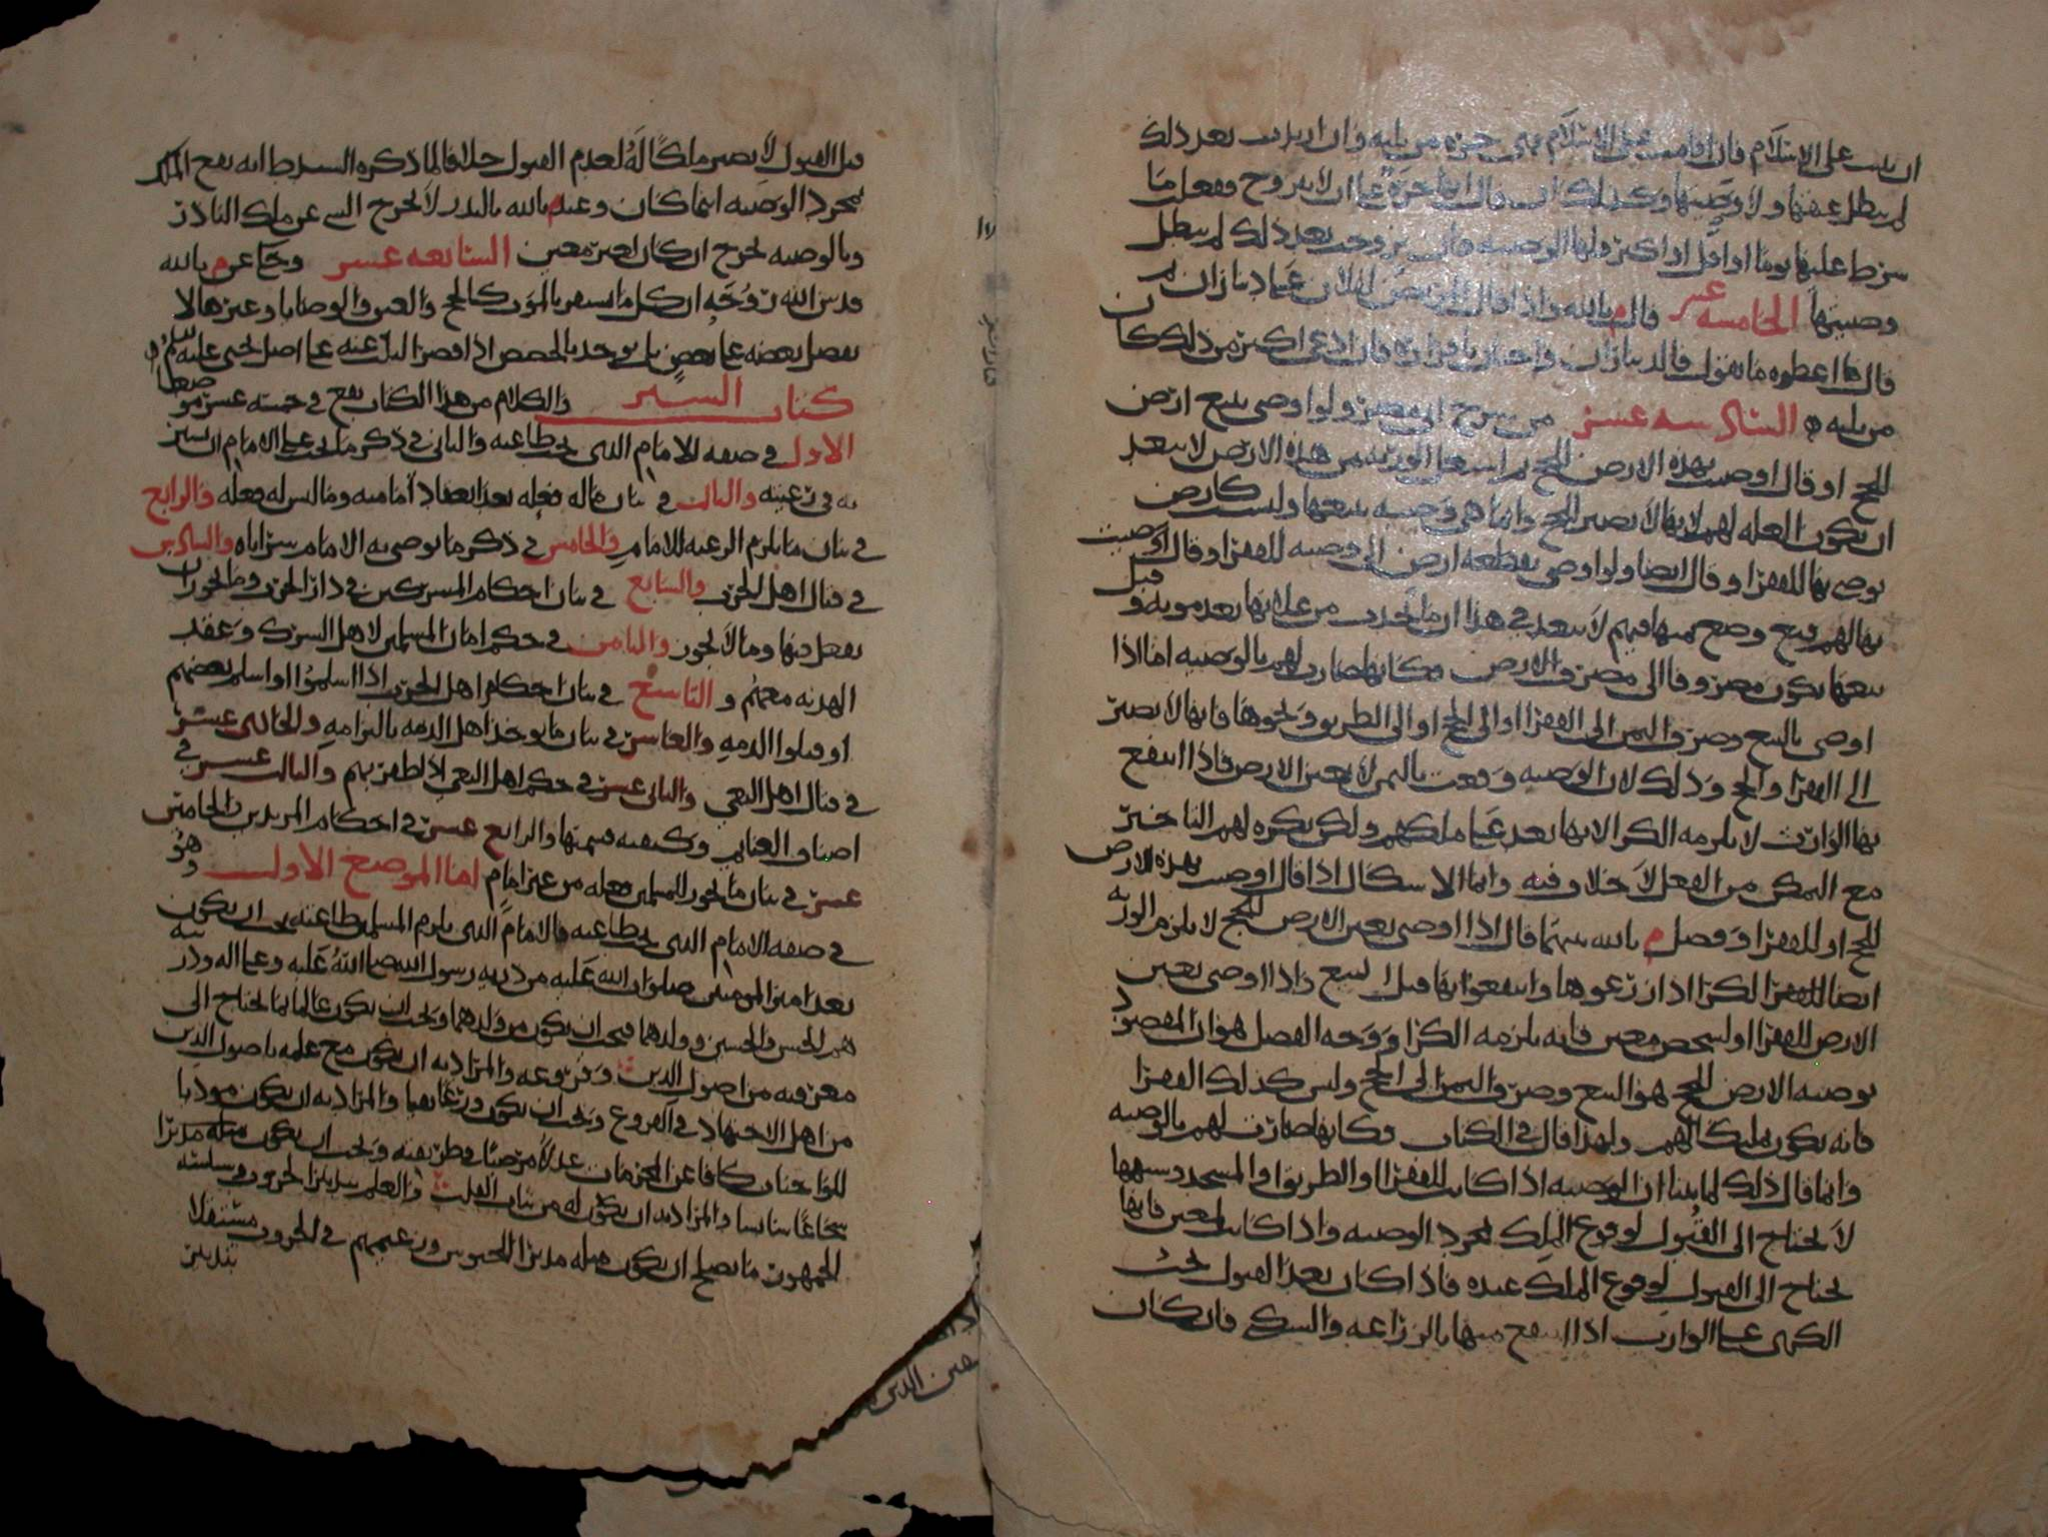 ان يثبت على الاسلام فان اقامت على الاسلام فهي حره من ثلثه وان ارتدت بعد ذلك
لم يبطل عتقها ولا وصيتها وكذلك ان قال انها حرة على ان لا تتزوج ففعلت ما
شرط عليها يوما او اقل او اكثر فلها الوصيه فان تزوجت بعد ذلك لم يبطل
وصيتها الخامسه عشر قال م بالله واذا قال المريض لفلان علي ديناران ثم
قال اعطوه ما يقول فالديناران واجبان باقراره فان ادعى اكثر من ذلك كان
من ثلثه السادسه عشر من شرح ابي مضر ولو اوصى ببيع ارض
للحج او قال اوصيت بهذه الارض للحج ثم استغل الورثه من هذه الارض لا يبعد
ان يكون الغله لهم لانها لا تصير للحج وانما هي وصيه ببيعها وليست كارض
يوصى بها للفقرا وقال ايضا ولو اوصى بقطعه ارض الى وصيه للفقرا او قال اوصيت
بها لهم فبيع وضع ثمنها فيهم لا يبعد في هذا ان ما يحدث من غلاتها بعد موته وقبل
بيعها يكون مصروفا الى مصرف الارض وكانها صارت لهم بالوصيه اما اذا
اوصى بالبيع وصرف الثمن الى الفقرا او الى الحج او الى الطريق ونحوها فانها لا تصير
الى الفقرا والحج وذلك لان الوصيه وقعت بالثمن لا بعين الارض فاذا انتفع
بها الوارث لا يلزمه الكرا لانها بعد على ملكهم ولكن يكره لهم التاخير
مع التمكن من الفعل لا خلاف فيه وانما الاشكال اذا قال اوصيت بهذه الارض
للحج او للفقرا وفصل م بالله بينهما قال اذا اوصى بعين الارض للحج لا يلزم الورثه
ايضا للفقرا الكرا اذا زرعوها وانتفعوا بها قبل البيع واذا اوصى بعين
الارض للفقرا او لشخص معين فانه يلزمه الكرا ووجه الفصل هو ان المقصود
بوصيه الارض للحج هو البيع وصرف الثمن الى الحج وليس كذلك الفقرا
فانه يكون ملكا لهم ولهذا قال في الكتاب وكانها صارت لهم بالوصيه
وانما قال ذلك لما بينا ان الوصيه اذا كانت للفقرا او الطريق او المسجد وشبهها
لا يحتاج الى القبول لوقوع الملك بمجرد الوصيه واذا كانت لمعين فانها
يحتاج الى القبول لوقوع الملك عنده فاذا كان بعد القبول يجب
الكرى على الوارث اذا انتفع منها بالزراعه والسكنى فان كان
قبل القبول لا يصير ملكا له لعدم القبول خلافا لما ذكره السيد ط انه يقع الملك
بمجرد الوصيه اينما كان وعند م بالله بالنذر لا يخرج الشي عن ملك الناذر
وبالوصيه يخرج ان كان لغير معين السابعه عشر وحكى عن م بالله
قدس الله روحه ان كل ما استقر بالموت كالحج والعتق والوصايا وغيرها لا
يفضل بعضه على بعض بل يوخذ بالحصص اذا قصر الثلث عنه على اصل يحيى عليه السلم
كتاب السير والكلام من هذا الكتاب يقع في خمسه عشر موضعا
الاول في صفه الامام الذي تجب طاعته والثاني في ذكر ما يجب على الامام ان يسير
به في رعيته والثالث في بيان ما له فعله بعد انعقاد امامته وما ليس له فعله والرابع
في بيان ما يلزم الرعيه للامام والخامس في ذكر ما يوصي به الامام سراياه والسادس
في قتال اهل الحرب والسابع في بيان احكام المشركين في دار الحرب وما يجوز ان
يفعل فيها وما لا يجوز والثامن في حكم امان المسلمين لاهل الشرك وعقد
الهدنه معهم والتاسع في بيان احكام اهل الحرب اذا اسلموا او اسلم بعضهم
او قبلوا الذمه والعاشر في بيان ما يوخذ اهل الذمه بالتزامه والحادي عشر
في قتال اهل البغي والثاني عشر في حكم اهل البغي اذا ظفر بهم والثالث عشر في
اصناف الغنايم وكيفيه قسمتها والرابع عشر في احكام المرتدين والخامس
عشر في بيان ما يجوز للمسلمين فعله من غير امام اما الموضع الاول وهو
في صفه الامام الذي تجب طاعته فالامام الذي يلزم المسلمين طاعته يجب ان يكون
بعد امير المومنين صلوات الله عليه من ذريه رسول الله صلى الله عليه وعلى اله وذريته
هم الحسن والحسين وولدهما فيجب ان يكون من ولدهما ويجب ان يكون عالما بما يحتاج الى
معرفته من اصول الدين وفروعه والمراد به ان يكون مع علمه باصول الدين
من اهل الاجتهاد في الفروع ويجب ان يكون ورعا تقيا والمراد به ان يكون موديا
للواجبات كافا عن المحرمات عدلا مرضيا في طريقته ويجب ان يكون مثله مدبرا
شجاعا سايسا والمراد به ان يكون له من ثبات القلب والعلم بتدبير الحروب وسياسه
الجمهور ما يصلح ان يكون مثله مدبرا للجيوش وزعيمهم في الحروب مستقلا
بتدبير